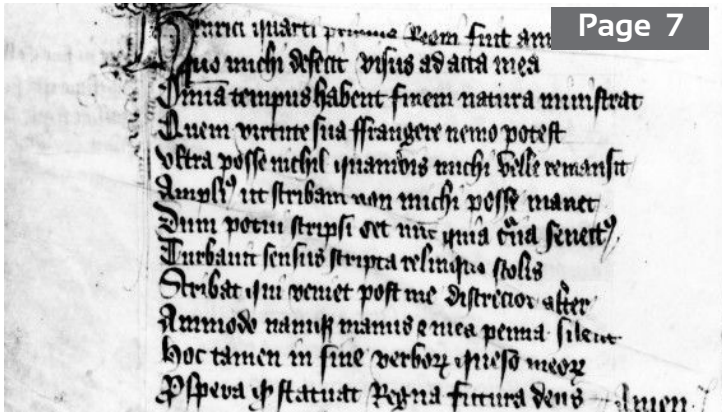 Page 7
Henrici quarti primus Regni fuit ann
Quo michi defecit visus ad acta mea
Omia tempus habent finem natura ministrat
Quem virtute sua ffrangere nemo potest
vltra posse nichil quamvis michi velle remansit
Ampliꝰ ut scribam non michi posse manet
Dum potui scripsi set nūc quia cᵘua senectꝰ
Turbauit sensus scripta relinquo scolis
Scribat qui veniet post me discrecior alter
Ammodo namqꝫ manus & mea penna silent
Hoc tamen in fine verboꝝ queso meoꝝ
Ꝓspera qͩ statuat Regna futura deus Amen